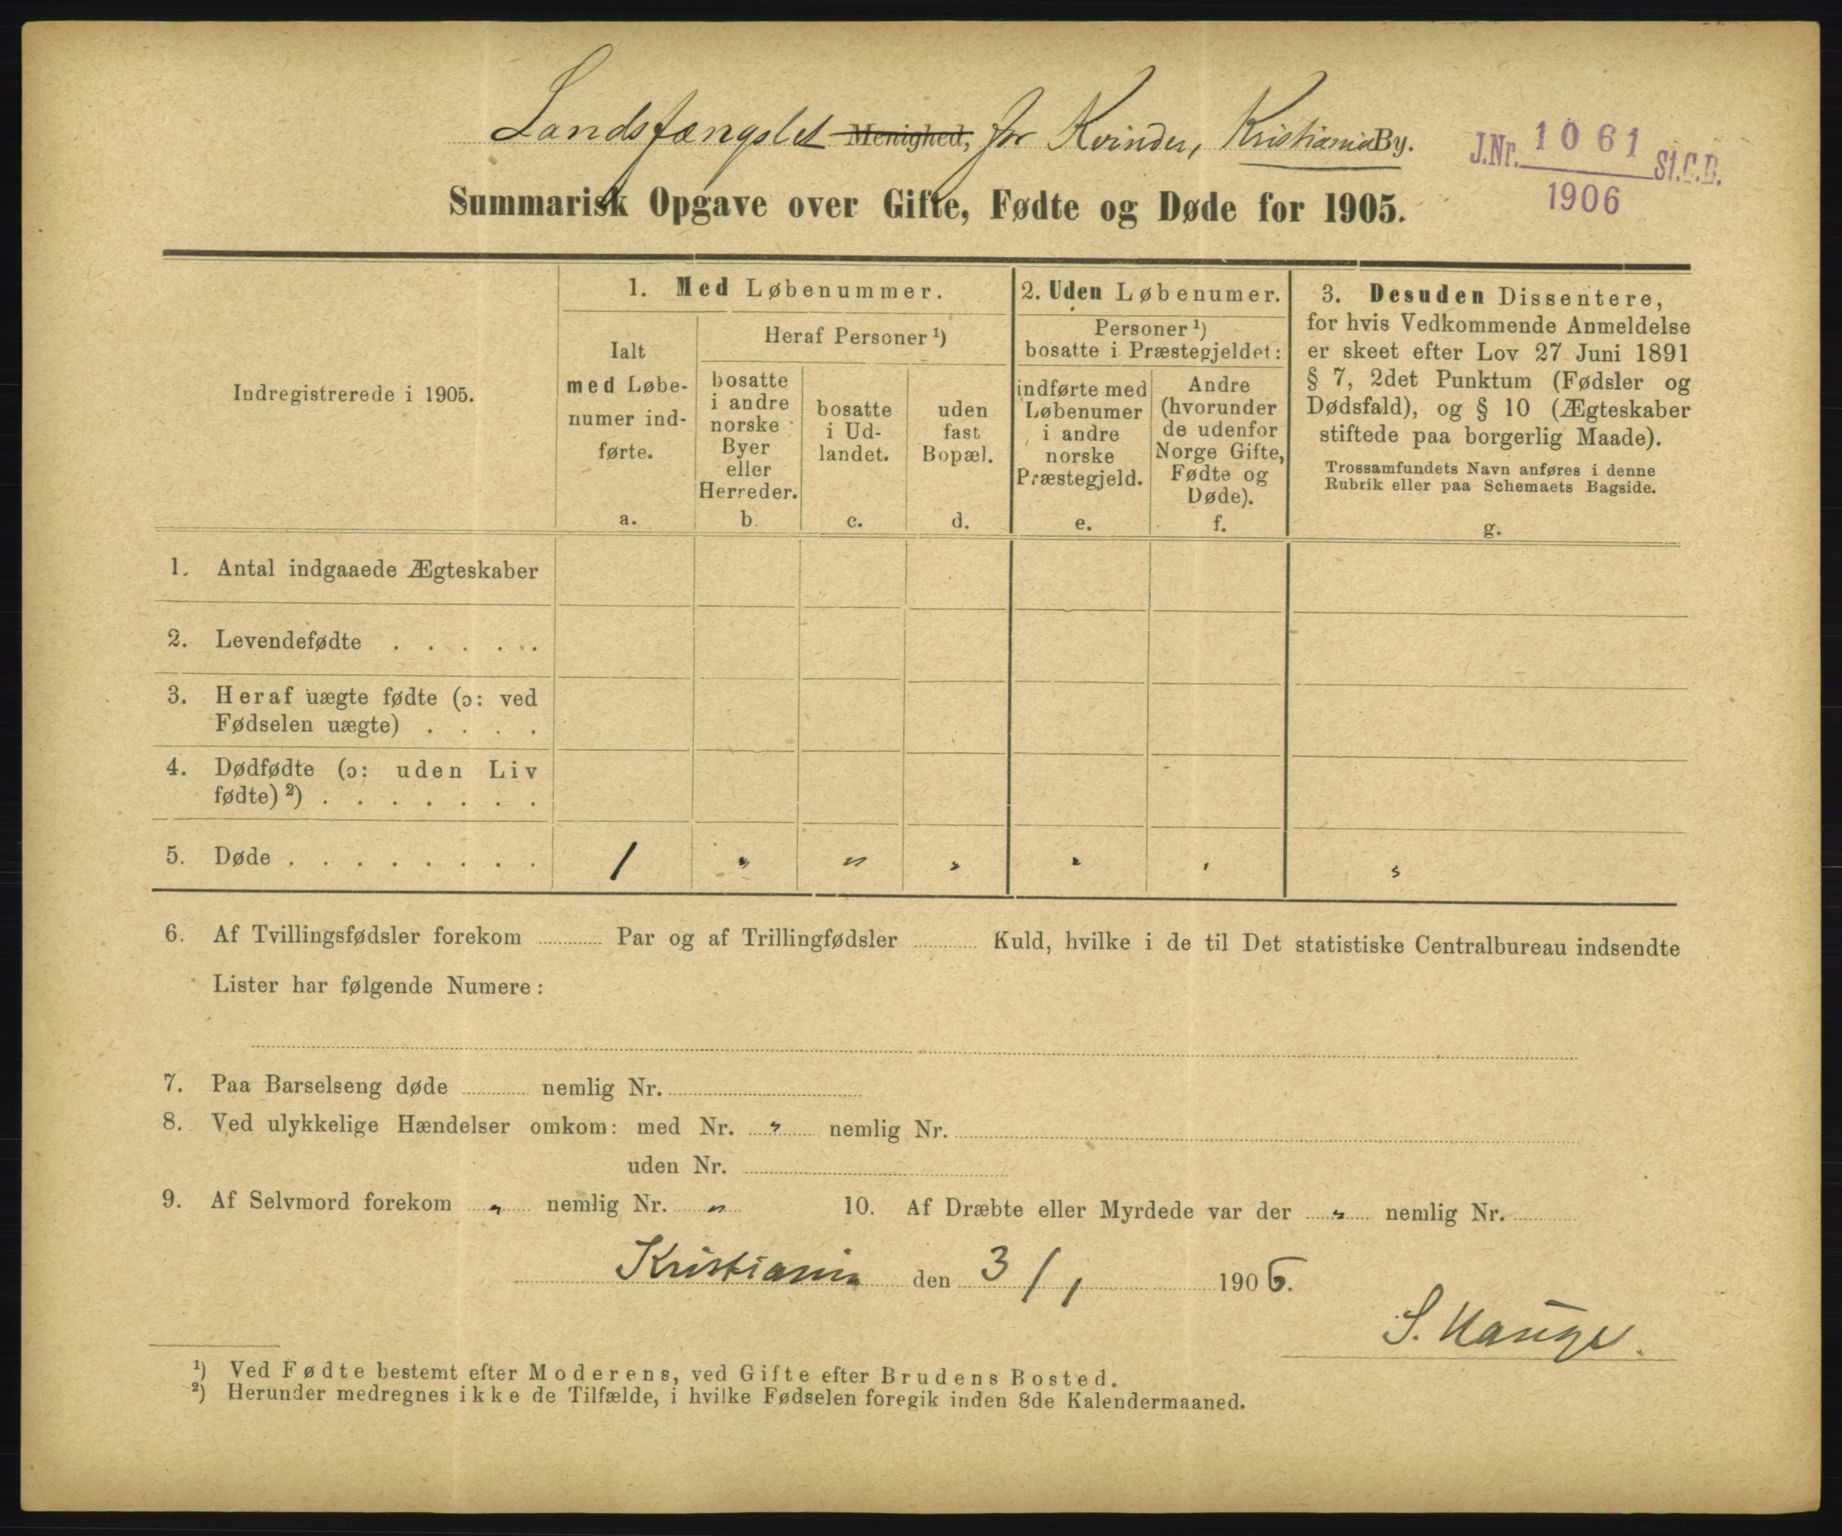 Landsfængslet Menighed, for Kvinder, Kristiania By.
J.Nr. 1061 St.C.B.
1906
Summarisk Opgave over Gifte, Fødte og Døde for 1905.
Indregistrerede i 1905.
1. Med Løbenummer.
Ialt
med Løbe-
numer ind-
førte.
a.
Heraf Personer ¹)
bosatte
i andre
norske
Byer
eller
Herreder.
b.
bosatte
i Ud-
landet.
c.
uden
fast
Bopæl.
d.
2. Uden Løbenumer.
Personer ¹)
bosatte i Præstegjeldet:
indførte med
Løbenumer
i andre
norske
Præstegjeld.
e.
Andre
(hvorunder
de udenfor
Norge Gifte,
Fødte og
Døde).
f.
3. Desuden Dissentere,
for hvis Vedkommende Anmeldelse
er skeet efter Lov 27 Juni 1891
§ 7, 2det Punktum (Fødsler og
Dødsfald), og § 10 (Ægteskaber
stiftede paa borgerlig Maade).
Trossamfundets Navn anføres i denne
Rubrik eller paa Schemaets Bagside.
g.
1. Antal indgaaede Ægteskaber
2. Levendefødte . . . . .
3. Heraf uægte fødte (ɔ: ved
Fødselen uægte) . . . .
4. Dødfødte (ɔ: uden Liv
fødte) ²) . . . . . . .
5. Døde . . . . . . . . 1 " " " " " "
6. Af Tvillingsfødsler forekom ........ Par og af Trillingfødsler ........ Kuld, hvilke i de til Det statistiske Centralbureau indsendte
Lister har følgende Numere:
7. Paa Barselseng døde ........ nemlig Nr. ........
8. Ved ulykkelige Hændelser omkom: med Nr. " nemlig Nr. ........
uden Nr. ........
9. Af Selvmord forekom " nemlig Nr. " 10. Af Dræbte eller Myrdede var der " nemlig Nr. ........
Kristiania den 3/1 1906.
S. Hauge.
¹) Ved Fødte bestemt efter Moderens, ved Gifte efter Brudens Bosted.
²) Herunder medregnes ikke de Tilfælde, i hvilke Fødselen foregik inden 8de Kalendermaaned.